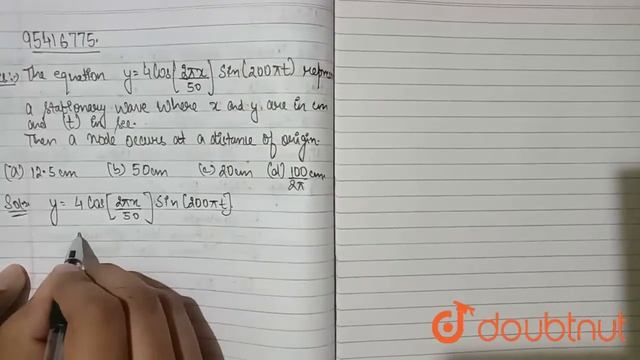 95416775.
The equation y=4cos[2πx/50] sin(200πt)
a stationary wave where x and y are in cm
and (t) in sec.
Then a node occurs at a distance of origin.
(a) 12.5cm (b) 50cm (c) 20cm (d) 100/2π cm
Soln y= 4 cos[2πx/50] sin[200πt]
doubtnut